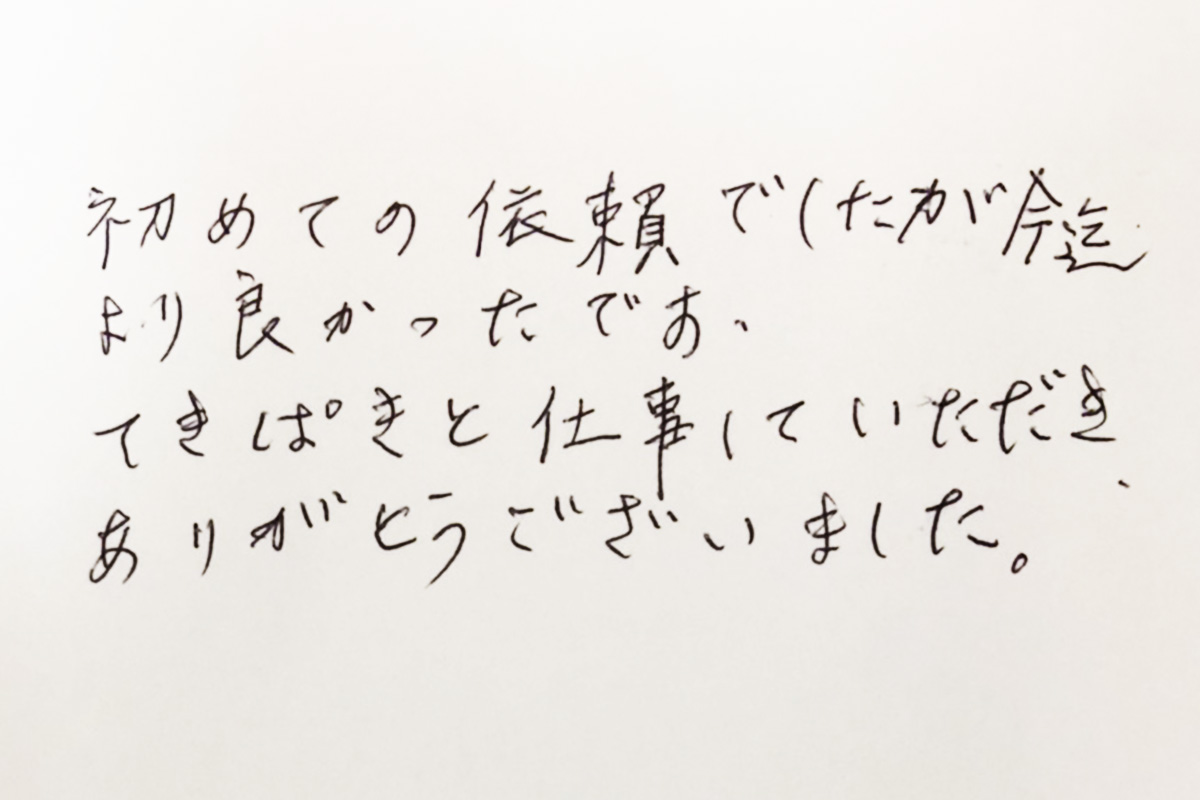 初めての依頼でしたが今迄
より良かったです、
てきぱきと仕事していただき、
ありがとうございました。